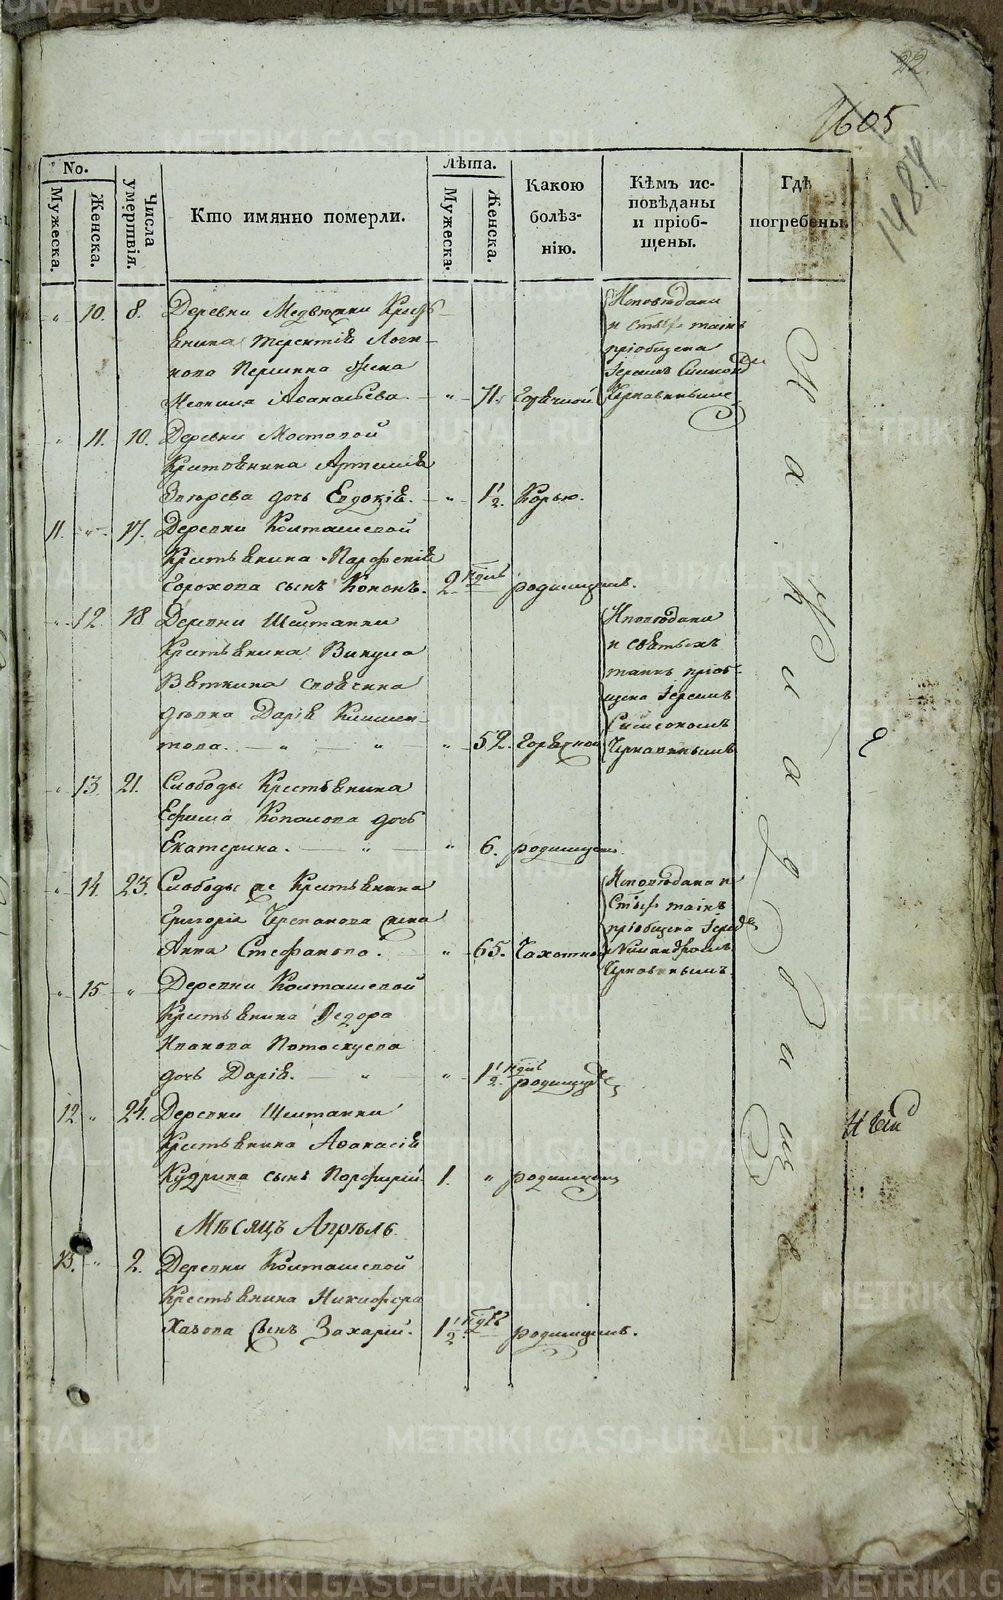 22.
1605
1484
No.
Мужеска.
Женска.
Числа умертвія.
Кто имянно померли.
Лѣта.
Мужеска.
Женска.
Какою болѣз-
нію.
Кѣмъ ис-
повѣданы
и пріоб-
щены.
Гдѣ
погребены.
" 10. 8. Деревни Медвѣжки Кресть
янина Терентія Логи-
нова Першина жена
Неонила Аѳанасьева " 71. Горячкой
Исповѣдана
и Стых таинъ
пріобщена
Іереемъ Симеоно
Чернавиным
" 11. 10. Деревни Мостовой
Крестьянина Артемія
дочь Евдокія. " 1 1/2. Корью.
11. " 17. Деревни Колташевой
Крестьянина Парфенія
Горохова сынъ Кононъ. 2 ндѣл родимцемъ.
" 12. 18 Деревни Шайтанки
Крестьянина Викула
Вяткина
дѣвка Дарія Климен-
това. " " " 52. Горячкой
Исповѣдана
и святыхъ
таинъ пріоб-
щена Іереемъ
Симеономъ
Чернавинымъ
" 13. 21. Слободы Крестьянина
Ефима Копалова дочь
Екатерина. " " 6. родимцем.
" 14. 23. Слободы же Крестьянина
Григорія Черепанова жена
Анна Стефанова. " 65. Чахоткой
Исповѣдана и
Стых таинъ
пріобщена Іерее
Чернавинымъ.
" 15 " Деревни Колташевой
Крестьянина Ѳедора
Иванова Потоскуева
дочь Дарія. " " 1 1/2 ндѣл родимцем
12 " 24. Деревни Шайтанки
Крестьянина Аѳанасія
Кудрина сынъ Порфирій 1. " родимцем
Мѣсяцъ Апрѣль.
13. " 2. Деревни Колташевой
Крестьянина Никифора
сынъ Захарій. 1 1/2 ндѣл родимцемъ.
На кладбищѣ
METRIKI.GASO-URAL.RU